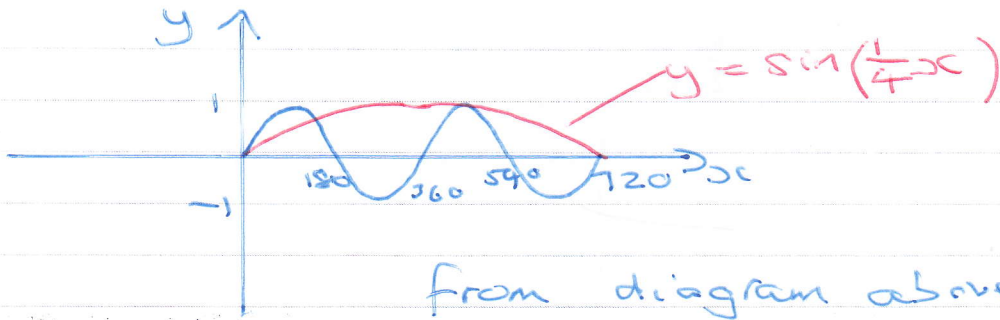 y
y = sin(1/4 x)
1
180 360 540 720 x
-1
from diagram above